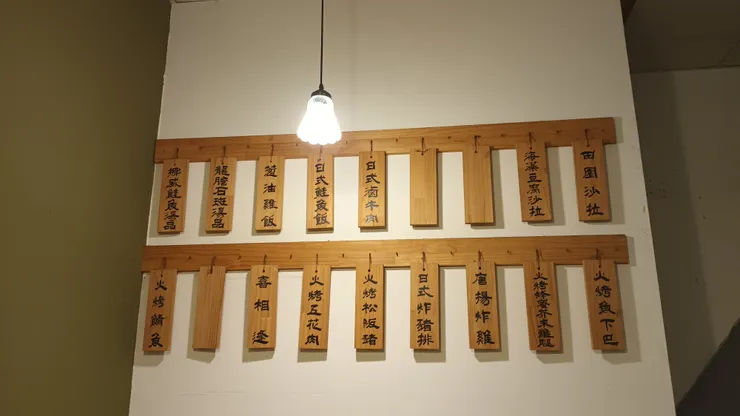 田園沙拉
海藻豆腐沙拉
日式滷牛肉
日式鮭魚飯
葱油雞飯
龍膽石斑湯品
挪威鮭魚湯品
火烤魚下巴
火烤蜂蜜芥末雞腿
唐揚炸雞
日式炸豬排
火烤松阪豬
火烤五花肉
喜相逢
火烤鯖魚